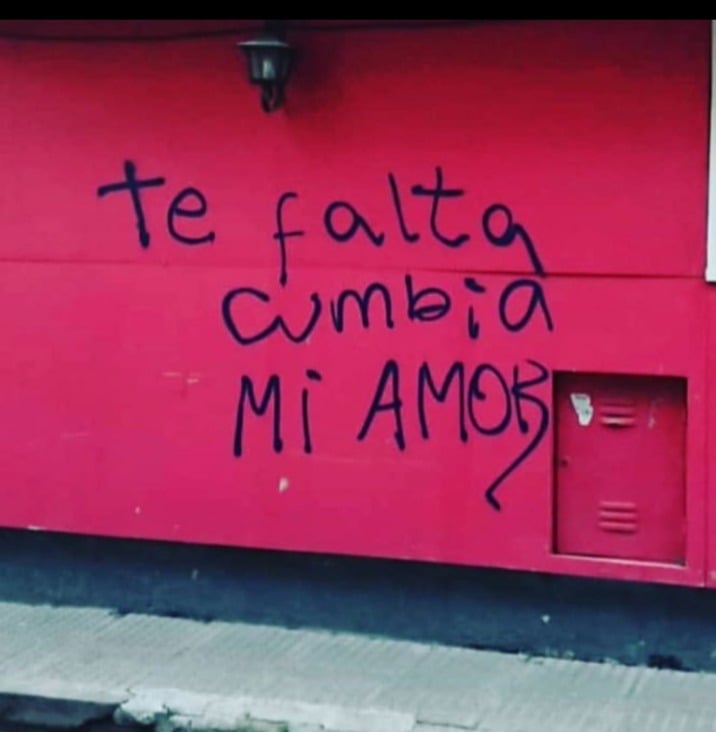 te falta
cumbia
Mi AMOR